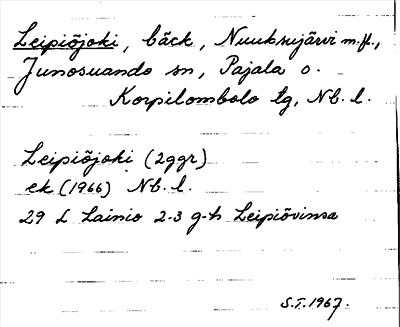 Leipiõjoki, bäck, Nuuksujärvi m.fl.,
Junosuando sn, Pajala o.
Korpilombolo tg, Nb. l.
Leipiõjoki (2ggr)
ek (1966) Nb. l.
29 L Lainio 2-3 g-h Leipiõvinsa
S.T. 1967.